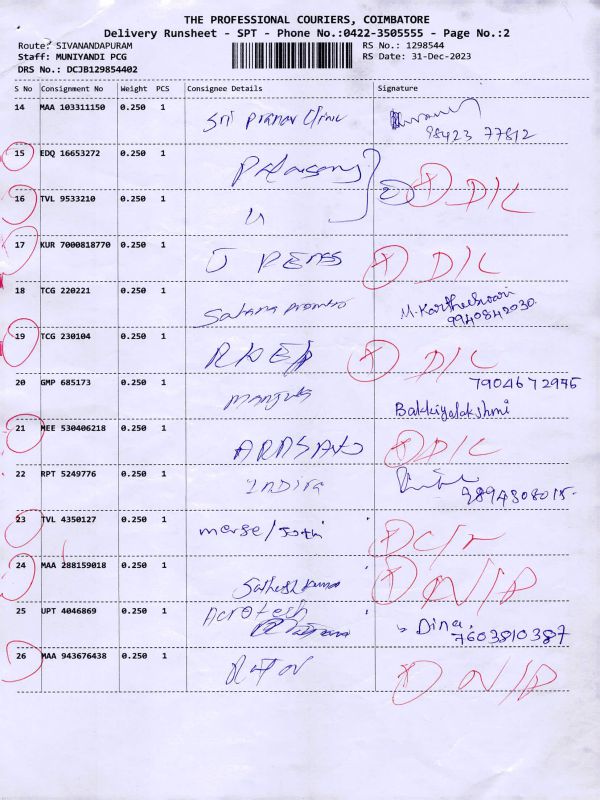 THE PROFESSIONAL COURIERS, COIMBATORE
Delivery Runsheet - SPT - Phone No.:0422-3505555 - Page No.:2
Route: SIVANANDAPURAM RS No.: 1298544
Staff: MUNIYANDI PCG RS Date: 31-Dec-2023
DRS No.: DCJB129854402
S No Consignment No Weight PCS Consignee Details Signature
14 MAA 103311150 0.250 1 Sri Pranav Clinic
98423 77812
15 EDQ 16653272 0.250 1
16 TVL 9533210 0.250 1 D/L
17 KUR 7000818770 0.250 1 D/L
18 TCG 220221 0.250 1 M. Kartheeswari
9940842030
19 TCG 230104 0.250 1 D/L
20 GMP 685173 0.250 1 7904672975
Bakkiyalakshmi
21 MEE 530406218 0.250 1 D/L
22 RPT 5249776 0.250 1 Indira
9894308015
23 TVL 4350127 0.250 1 merse/Jothi
24 MAA 288159018 0.250 1 Sathesh Kumar N/P
25 UPT 4046869 0.250 1 Acrotech Dina
7603810387
26 MAA 943676438 0.250 1 N/P